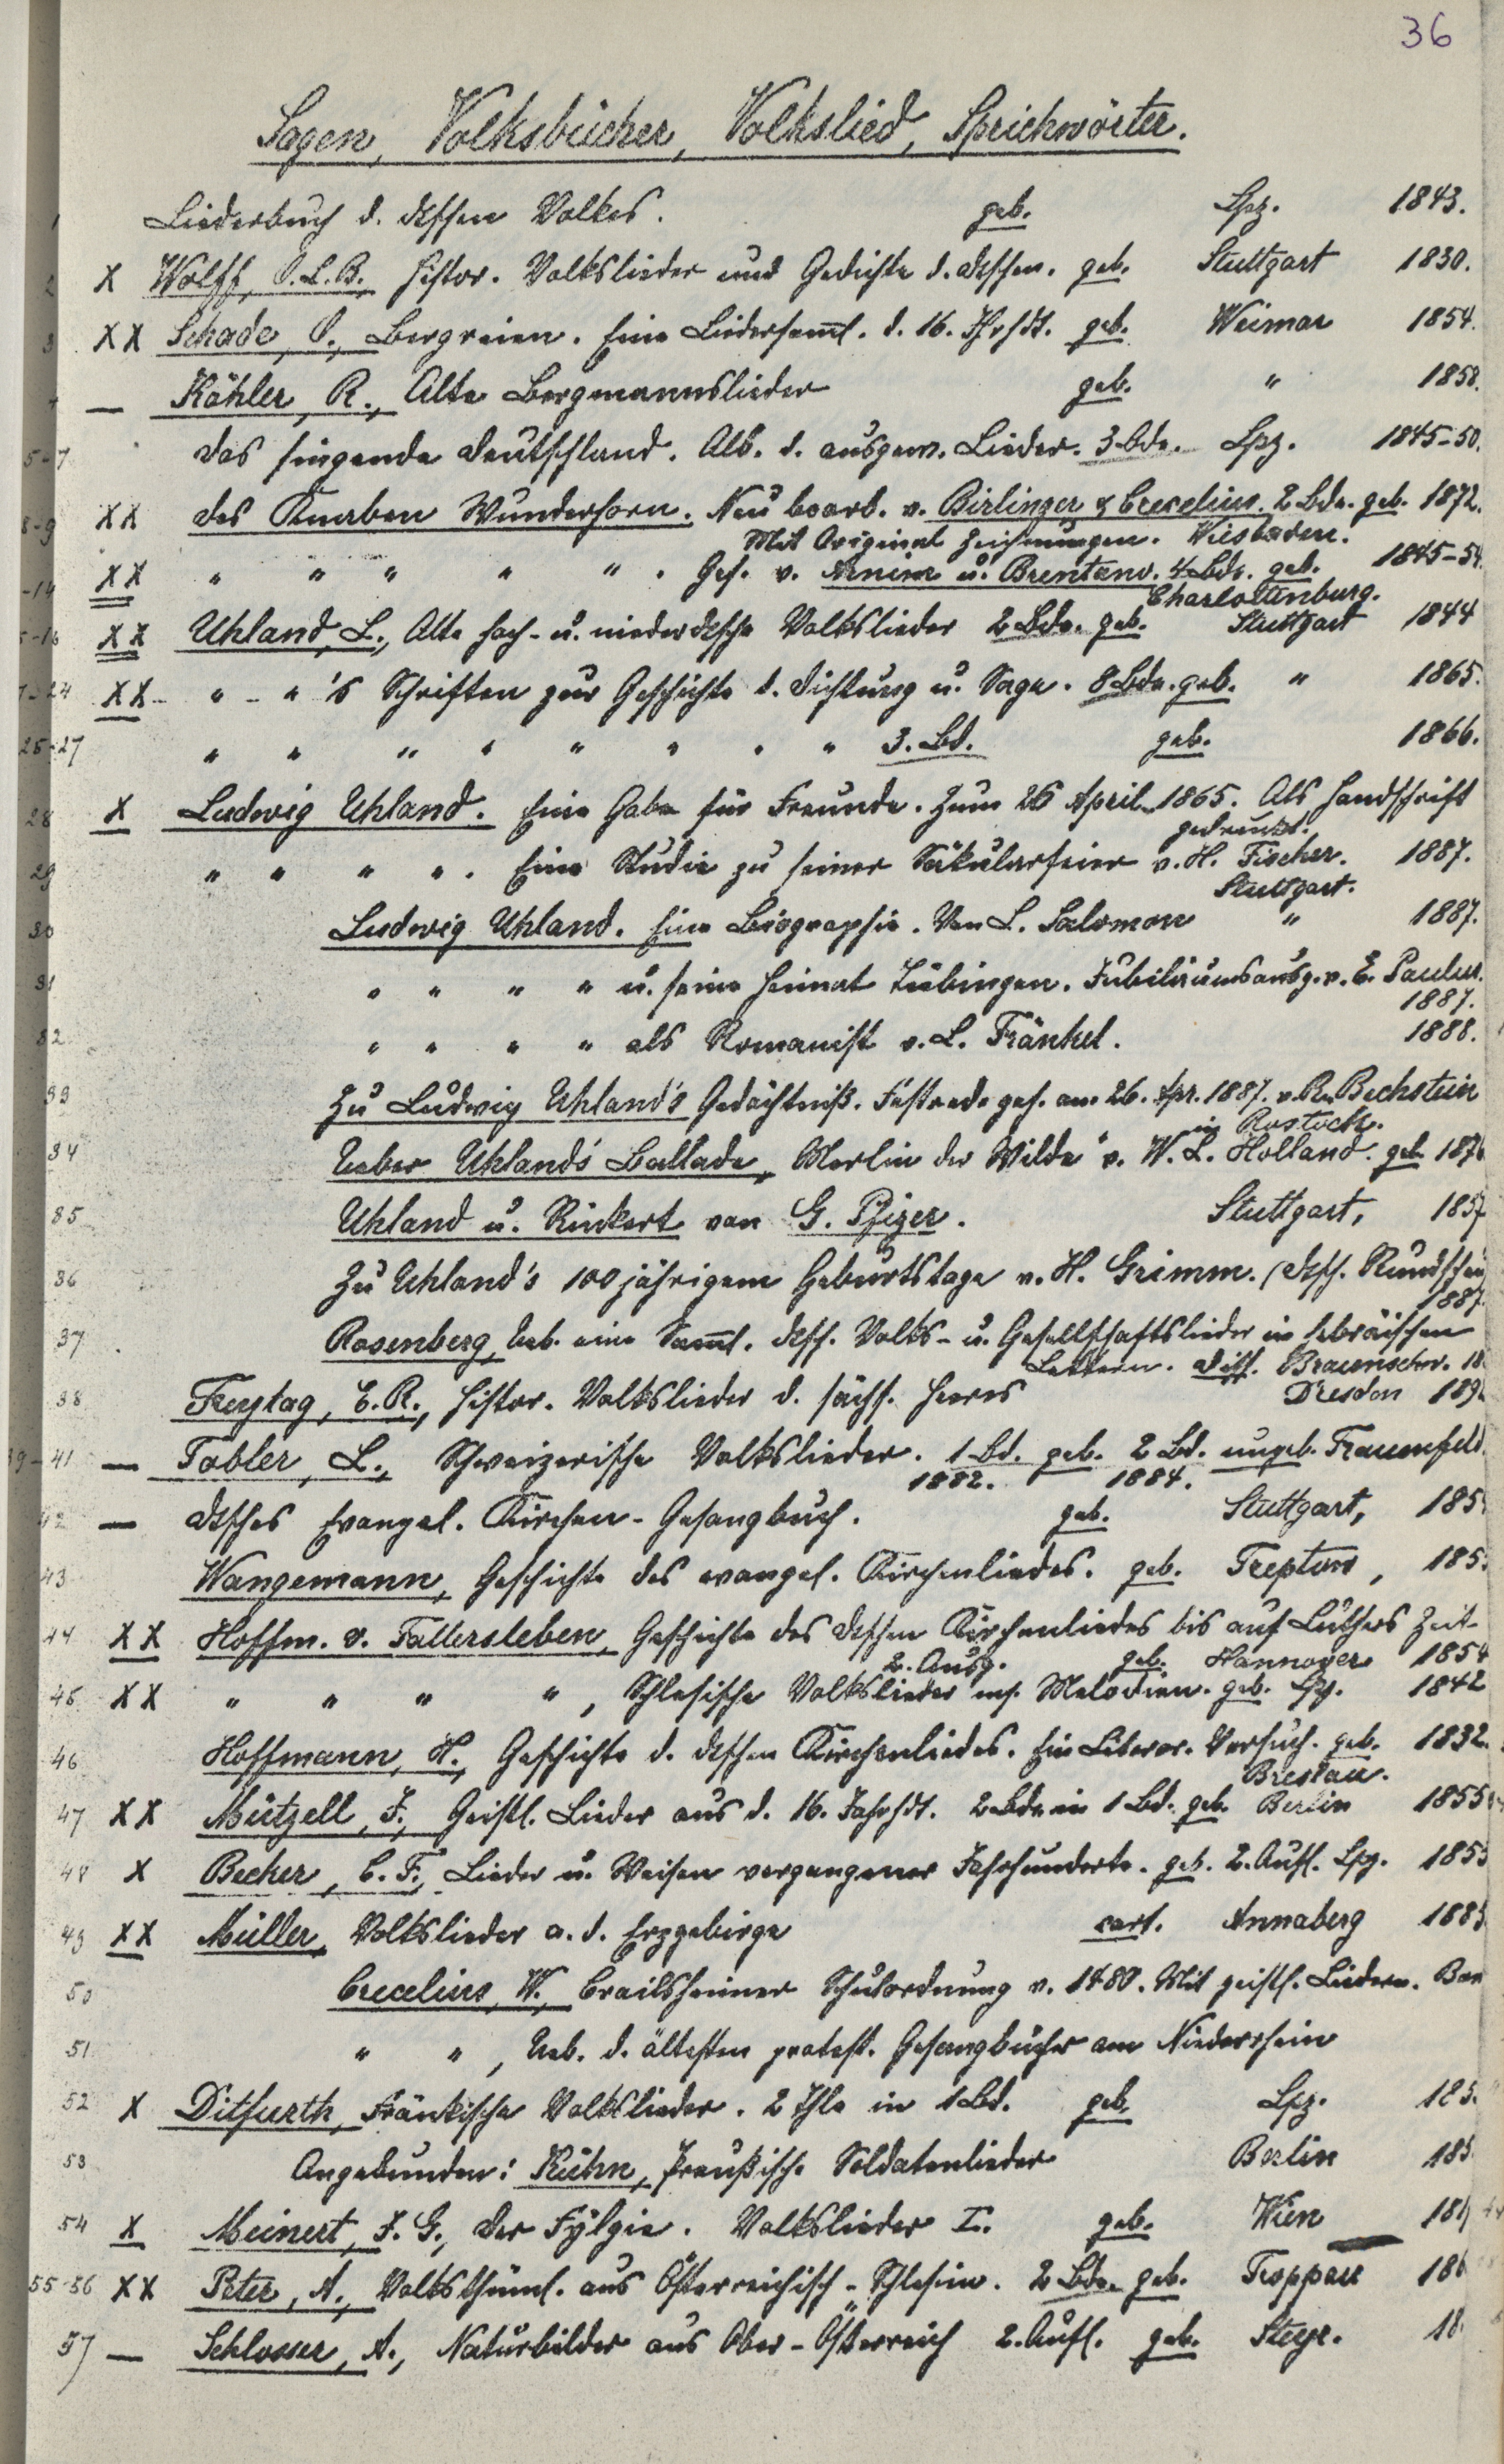 36
Sagen, Volksbücher, Volkslied, Sprichwörter.
1 Liederbuch d. dtschen Volkes. geb. Lpz. 1843.
2 X Wolff, O.L.B., histor. Volkslieder und Gedichte d. dtschen. geb. Stuttgart 1830.
3 XX Schade, O., Bergreien. Eine Liedersaml. d. 16. Jhrhdt. geb. Weimar 1854.
— Köhler, R., Alte Bergmannslieder geb. " 1858.
5-7 das singende Deutschland. Alb. d. ausgew. Lieder. 3 Bde. Lpz. 1845-50.
8-9 XX des Knaben Wunderhorn. Neu bearb. v. Birlinger & Crecelius. 2 Bde. geb. 1872.
Mit Original Zeichnungen. Wiesbaden.
-14 XX " " " " " . Ges. v. Arnim u. Brentano. 4 Bde. geb. 1845-54
Charlottenburg.
5-16 XX Uhland, L., Alte hoch- u. niederdtsche Volkslieder 2 Bde. geb. Stuttgart 1844
7-24 XX - " - " 's Schriften zur Geschichte d. Dichtung u. Sage. 8 Bde. geb. " 1865.
25-27 " " " " " " " " 3. Bd. geb. 1866.
28 X Ludwig Uhland. Eine Gabe für Freunde. Zum 26 April 1865. Als Handschrift
gedruckt.
29 " " " " . Eine Studie zu seiner Säkularfeier v. H. Fischer. 1887.
Stuttgart.
30 Ludwig Uhland. Eine Biographie. Von L. Salomon " 1887.
31 " " " " u. seine Heimat Tübingen. Jubiläumsausg. v. E. Paulus.
1887.
32 " " " " als Romanist v. L. Fränkel. 1888.
33 Zu Ludwig Uhland's Gedächtniß. Festrede geh. am 26. Apr. 1887. v. R. Bechstein
in Rostock.
34 Ueber Uhland's Ballade „Merlin der Wilde" v. W. L. Holland. geb. 187
35 Uhland u. Rückert von G. Pfizer. Stuttgart, 1837
36 Zu Uhland's 100 jährigem Geburtstage v. H. Grimm. (Dtsch. Rundschau
1887.
37 Rosenberg, Ueb. eine Saml. dtsch. Volks- u. Gesellschaftslieder in hebräischen
Lettern. Diss. Braunschw. 18
38 Freytag, E. R., histor. Volkslieder d. sächs. Heeres Dresden 189
39-41 — Tobler, L., Schweizerische Volkslieder. 1 Bd. geb. 2 Bd. ungeb. Frauenfeld.
1882. 1884.
42 — dtsches Evangel. Kirchen-Gesangbuch. geb. Stuttgart, 185
43 Wangemann, Geschichte des evangel. Kirchenliedes. geb. Treptow, 185
44 XX Hoffm. v. Fallersleben, Geschichte des dtschen Kirchenliedes bis auf Luthers Zeit
2. Ausg. geb. Hannover 1854
45 XX " " " " , Schlesische Volkslieder m. Melodien. geb. Lpz. 1842
46 Hoffmann, H., Geschichte d. dtschen Kirchenliedes. Ein Literar. Versuch. geb. 1832.
Breslau.
47 XX Mützell, J., Geistl. Lieder aus d. 16. Jahrhdt. 2 Bde in 1 Bd. geb. Berlin 1855
48 X Becker, C. F., Lieder u. Weisen vergangener Jahrhunderte. geb. 2. Aufl. Lpz. 1853
49 XX Müller, Volkslieder a. d. Erzgebirge cart. Annaberg 1883
50 Crecelius, W., Crailsheimer Schulordnung v. 1480. Mit geistl. Liedern. Bon
51 " " , Ueb. d. ältesten protest. Gesangbücher am Niederrhein
52 X Ditfurth, Fränkische Volkslieder. 2 Thle in 1 Bd. geb. Lpz. 185.
53 Angebunden: Kühn, Preußische Soldatenlieder Berlin 185
54 X Meinert, J. G., Der Fylgie. Volkslieder I. geb. Wien 181
55-56 XX Peter, A., Volksthüml. aus Österreichisch-Schlesien. 2 Bde. geb. Troppau 186
57 — Schlosser, A., Naturbilder aus Ober-Österreich 2. Aufl. geb. Steyr. 18